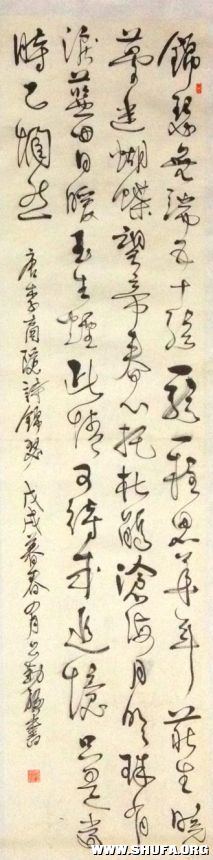 錦瑟無端五十弦一弦一柱思華年莊生曉
夢迷蝴蝶望帝春心托杜鵑滄海月明珠有
淚藍田日暖玉生煙此情可待成追憶只是當
時已惘然
唐李商隱詩錦瑟 戊戌暮春 月 書
WWW.SHUFA.ORG